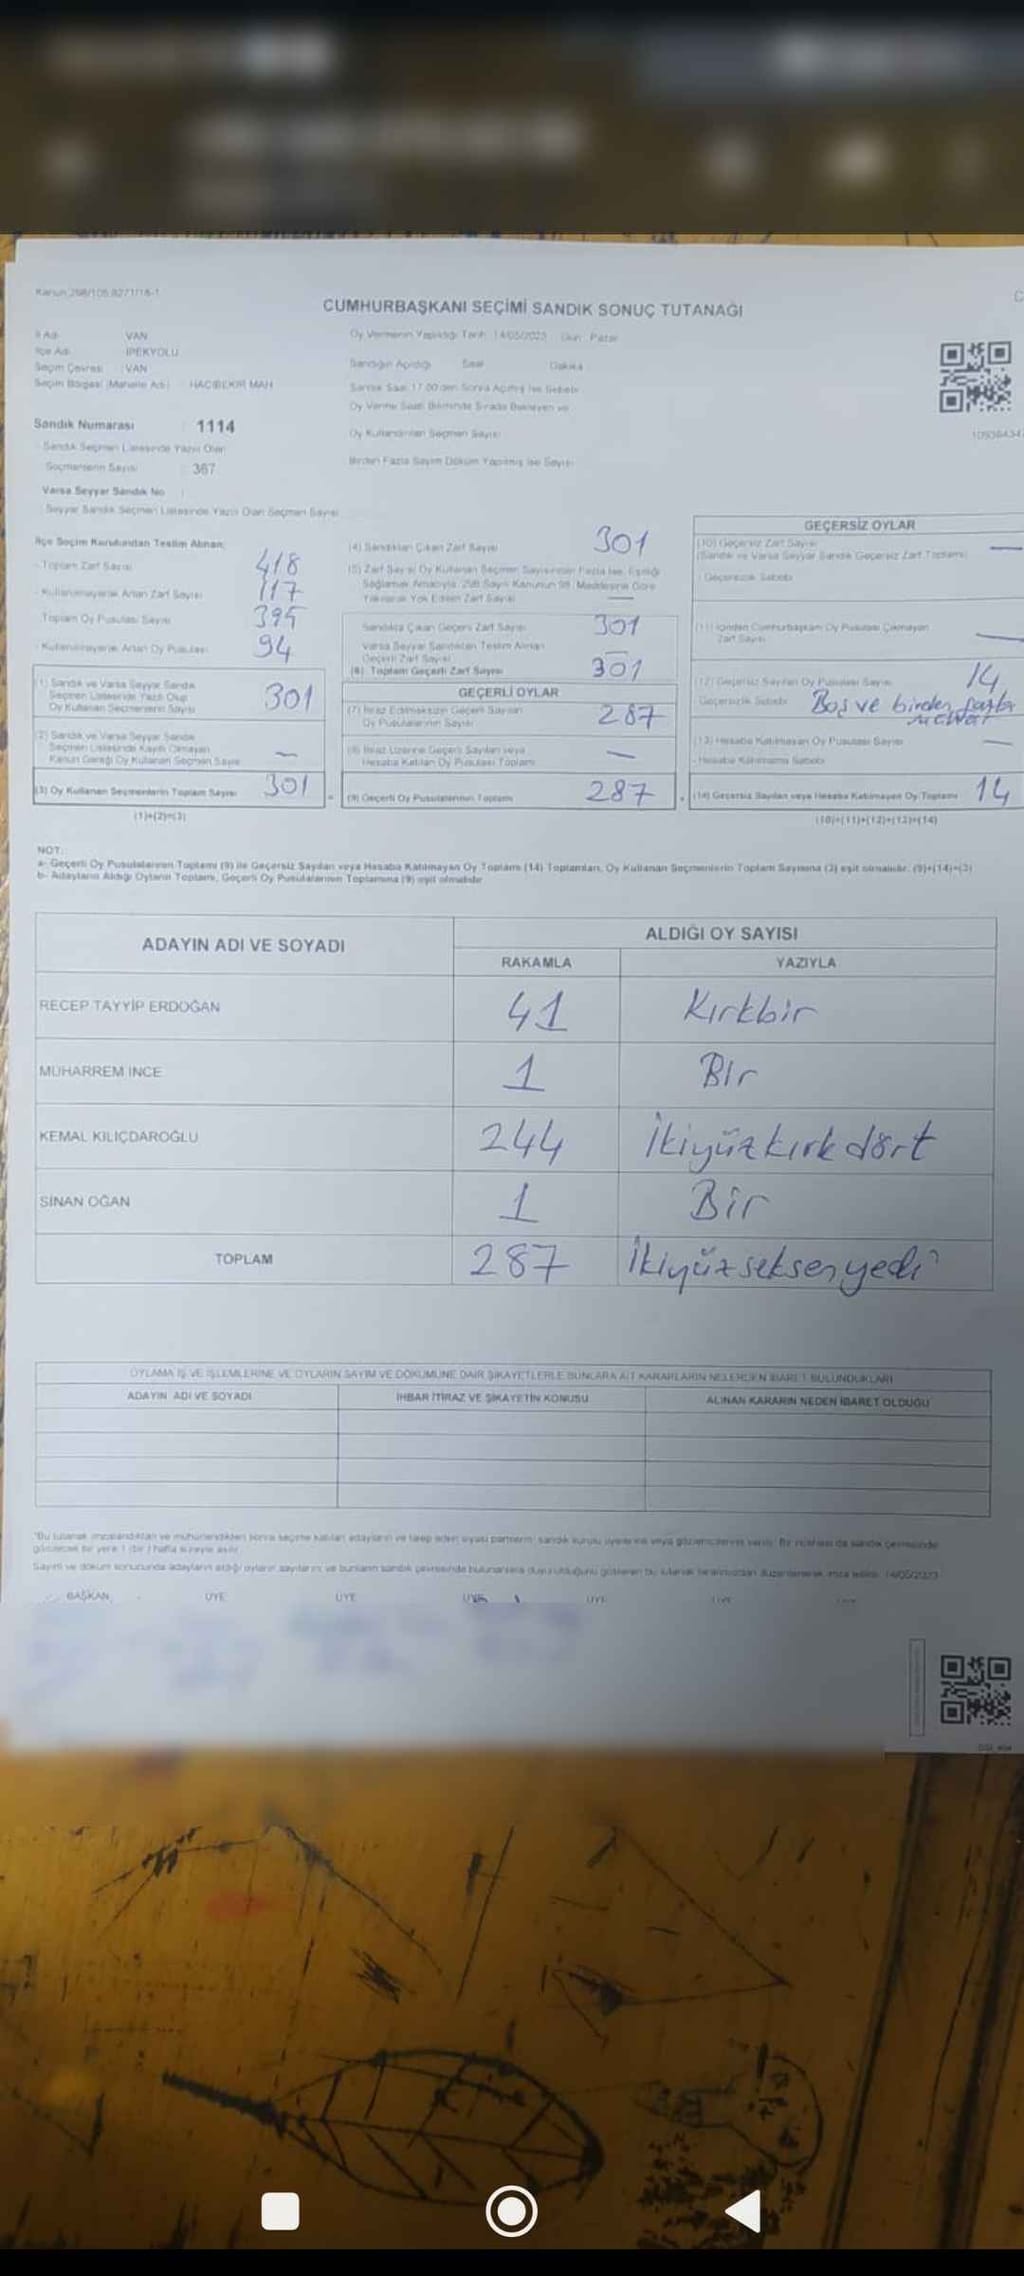 Kanun 298/105.9271/16-1
CUMHURBAŞKANI SEÇİMİ SANDIK SONUÇ TUTANAĞI
İl Adı VAN
İlçe Adı İPEKYOLU
Seçim Çevresi : VAN
Seçim Bölgesi (Mahalle Adı) : HACIBEKİR MAH
Sandık Numarası : 1114
Sandık Seçmen Listesinde Yazılı Olan
Seçmenlerin Sayısı : 367
Varsa Seyyar Sandık No :
Seyyar Sandık Seçmen Listesinde Yazılı Olan Seçmen Sayısı
Oy Vermenin Yapıldığı Tarih : 14/05/2023 Gün : Pazar
Sandığın Açıldığı Saat Dakika
Sandık Saat 17.00'den Sonra Açılmış İse Sebebi
Oy Verme Saati Bitiminde Sırada Bekleyen ve
Oy Kullandırılan Seçmen Sayısı
Birden Fazla Sayım Döküm Yapılmış İse Sayısı
İlçe Seçim Kurulundan Teslim Alınan;
- Toplam Zarf Sayısı 418
- Kullanılmayarak Artan Zarf Sayısı 117
Toplam Oy Pusulası Sayısı 395
- Kullanılmayarak Artan Oy Pusulası 94
(1) Sandık ve Varsa Seyyar Sandık
Seçmen Listesinde Yazılı Olup
Oy Kullanan Seçmenlerin Sayısı 301
(2) Sandık ve Varsa Seyyar Sandık
Seçmen Listesinde Kayıtlı Olmayan
Kanun Gereği Oy Kullanan Seçmen Sayısı —
(3) Oy Kullanan Seçmenlerin Toplam Sayısı 301
(1)+(2)=(3)
(4) Sandıktan Çıkan Zarf Sayısı 301
(5) Zarf Sayısı Oy Kullanan Seçmen Sayısından Fazla İse, Eşitliği
Sağlamak Amacıyla, 298 Sayılı Kanunun 98. Maddesine Göre
Yakılarak Yok Edilen Zarf Sayısı —
Sandıkta Çıkan Geçerli Zarf Sayısı 301
Varsa Seyyar Sandıktan Teslim Alınan
Geçerli Zarf Sayısı —
(6) Toplam Geçerli Zarf Sayısı 301
GEÇERLİ OYLAR
(7) İtiraz Edilmeksizin Geçerli Sayılan
Oy Pusulalarının Sayısı 287
(8) İtiraz Üzerine Geçerli Sayılan veya
Hesaba Katılan Oy Pusulası Toplamı —
(9) Geçerli Oy Pusulalarının Toplamı 287
GEÇERSİZ OYLAR
(10) Geçersiz Zarf Sayısı —
(Sandık ve Varsa Seyyar Sandık Geçersiz Zarf Toplamı)
- Geçersizlik Sebebi
(11) İçinden Cumhurbaşkanı Oy Pusulası Çıkmayan
Zarf Sayısı —
(12) Geçersiz Sayılan Oy Pusulası Sayısı 14
Geçersizlik Sebebi Boş ve birden fazla
(13) Hesaba Katılmayan Oy Pusulası Sayısı —
- Hesaba Katılmama Sebebi
(14) Geçersiz Sayılan veya Hesaba Katılmayan Oy Toplamı 14
(10)+(11)+(12)+(13)=(14)
NOT:
a- Geçerli Oy Pusulalarının Toplamı (9) ile Geçersiz Sayılan veya Hesaba Katılmayan Oy Toplamı (14) Toplamları, Oy Kullanan Seçmenlerin Toplam Sayısına (3) eşit olmalıdır. (9)+(14)=(3)
b- Adayların Aldığı Oyların Toplamı, Geçerli Oy Pusulalarının Toplamına (9) eşit olmalıdır
ADAYIN ADI VE SOYADI ALDIĞI OY SAYISI
RAKAMLA YAZIYLA
RECEP TAYYİP ERDOĞAN 41 Kırkbir
MUHARREM İNCE 1 Bir
KEMAL KILIÇDAROĞLU 244 İkiyüzkırkdört
SİNAN OĞAN 1 Bir
TOPLAM 287 İkiyüzseksenyedi
OYLAMA İŞ VE İŞLEMLERİNE VE OYLARIN SAYIM VE DÖKÜMÜNE DAİR ŞİKAYETLERLE BUNLARA AİT KARARLARIN NELERDEN İBARET BULUNDUKLARI
ADAYIN ADI VE SOYADI İHBAR İTİRAZ VE ŞİKAYETİN KONUSU ALINAN KARARIN NEDEN İBARET OLDUĞU
BAŞKAN ÜYE ÜYE ÜYE ÜYE ÜYE ÜYE